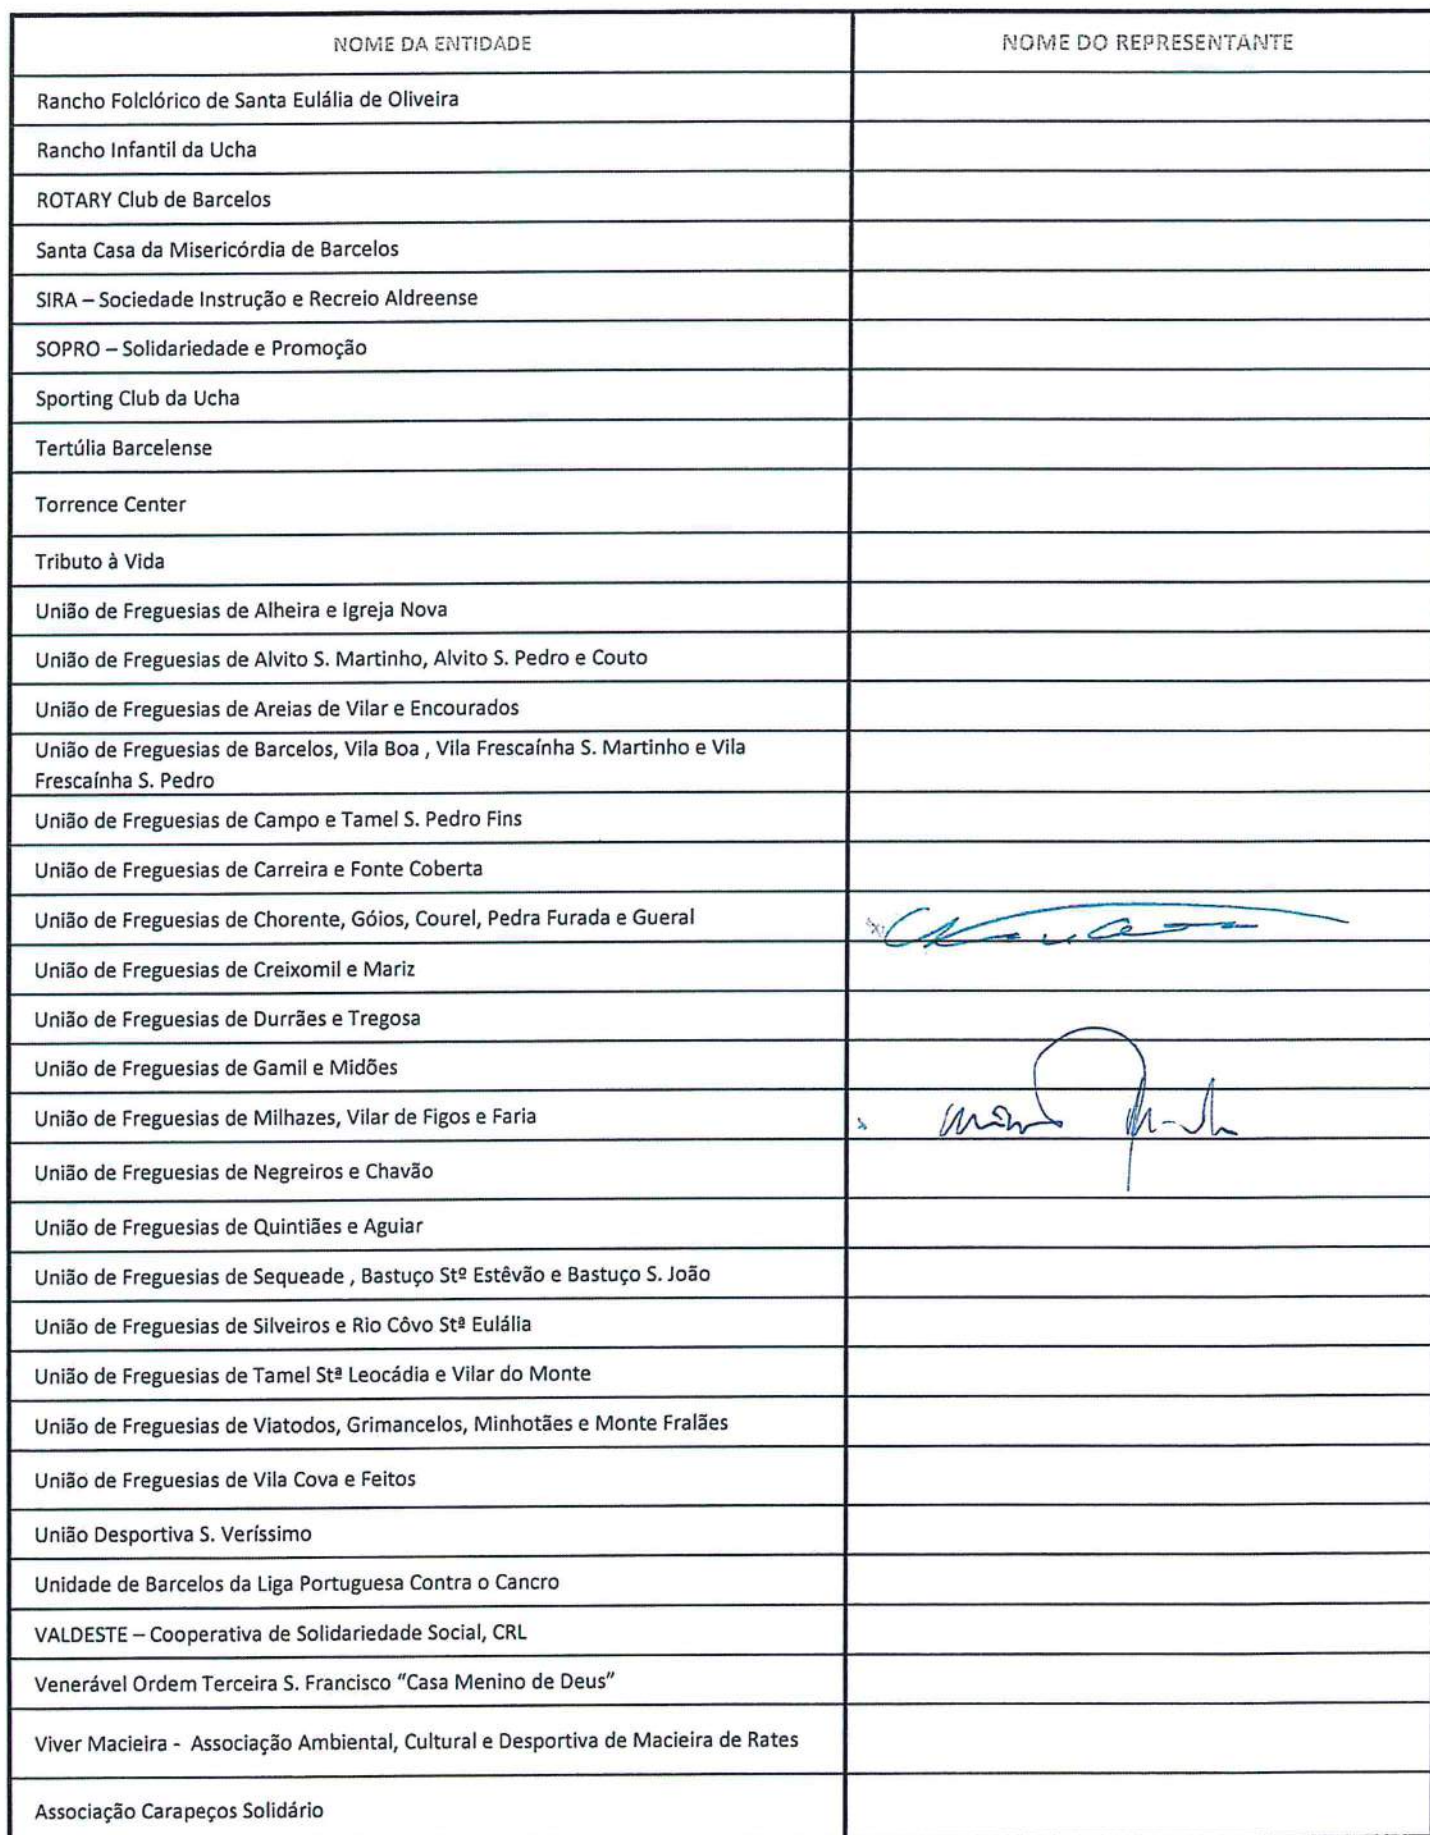 NOME DA ENTIDADE NOME DO REPRESENTANTE
Rancho Folclórico de Santa Eulália de Oliveira
Rancho Infantil da Ucha
ROTARY Club de Barcelos
Santa Casa da Misericórdia de Barcelos
SIRA – Sociedade Instrução e Recreio Aldreense
SOPRO – Solidariedade e Promoção
Sporting Club da Ucha
Tertúlia Barcelense
Torrence Center
Tributo à Vida
União de Freguesias de Alheira e Igreja Nova
União de Freguesias de Alvito S. Martinho, Alvito S. Pedro e Couto
União de Freguesias de Areias de Vilar e Encourados
União de Freguesias de Barcelos, Vila Boa , Vila Frescaínha S. Martinho e Vila
Frescaínha S. Pedro
União de Freguesias de Campo e Tamel S. Pedro Fins
União de Freguesias de Carreira e Fonte Coberta
União de Freguesias de Chorente, Góios, Courel, Pedra Furada e Gueral
União de Freguesias de Creixomil e Mariz
União de Freguesias de Durrães e Tregosa
União de Freguesias de Gamil e Midões
União de Freguesias de Milhazes, Vilar de Figos e Faria
União de Freguesias de Negreiros e Chavão
União de Freguesias de Quintiães e Aguiar
União de Freguesias de Sequeade , Bastuço Stº Estêvão e Bastuço S. João
União de Freguesias de Silveiros e Rio Côvo Stª Eulália
União de Freguesias de Tamel Stª Leocádia e Vilar do Monte
União de Freguesias de Viatodos, Grimancelos, Minhotães e Monte Fralães
União de Freguesias de Vila Cova e Feitos
União Desportiva S. Veríssimo
Unidade de Barcelos da Liga Portuguesa Contra o Cancro
VALDESTE – Cooperativa de Solidariedade Social, CRL
Venerável Ordem Terceira S. Francisco “Casa Menino de Deus”
Viver Macieira - Associação Ambiental, Cultural e Desportiva de Macieira de Rates
Associação Carapeços Solidário